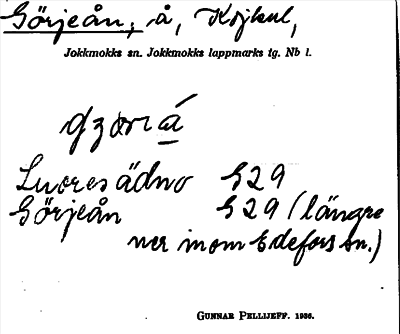 Görjeån, å,
Jokkmokks sn. Jokkmokks lappmarks tg. Nb l.
Luoresädno G29
Görjeån G29 (längre
ner inom Edefors sn.)
GUNNAR PELLIJEFF. 1936.